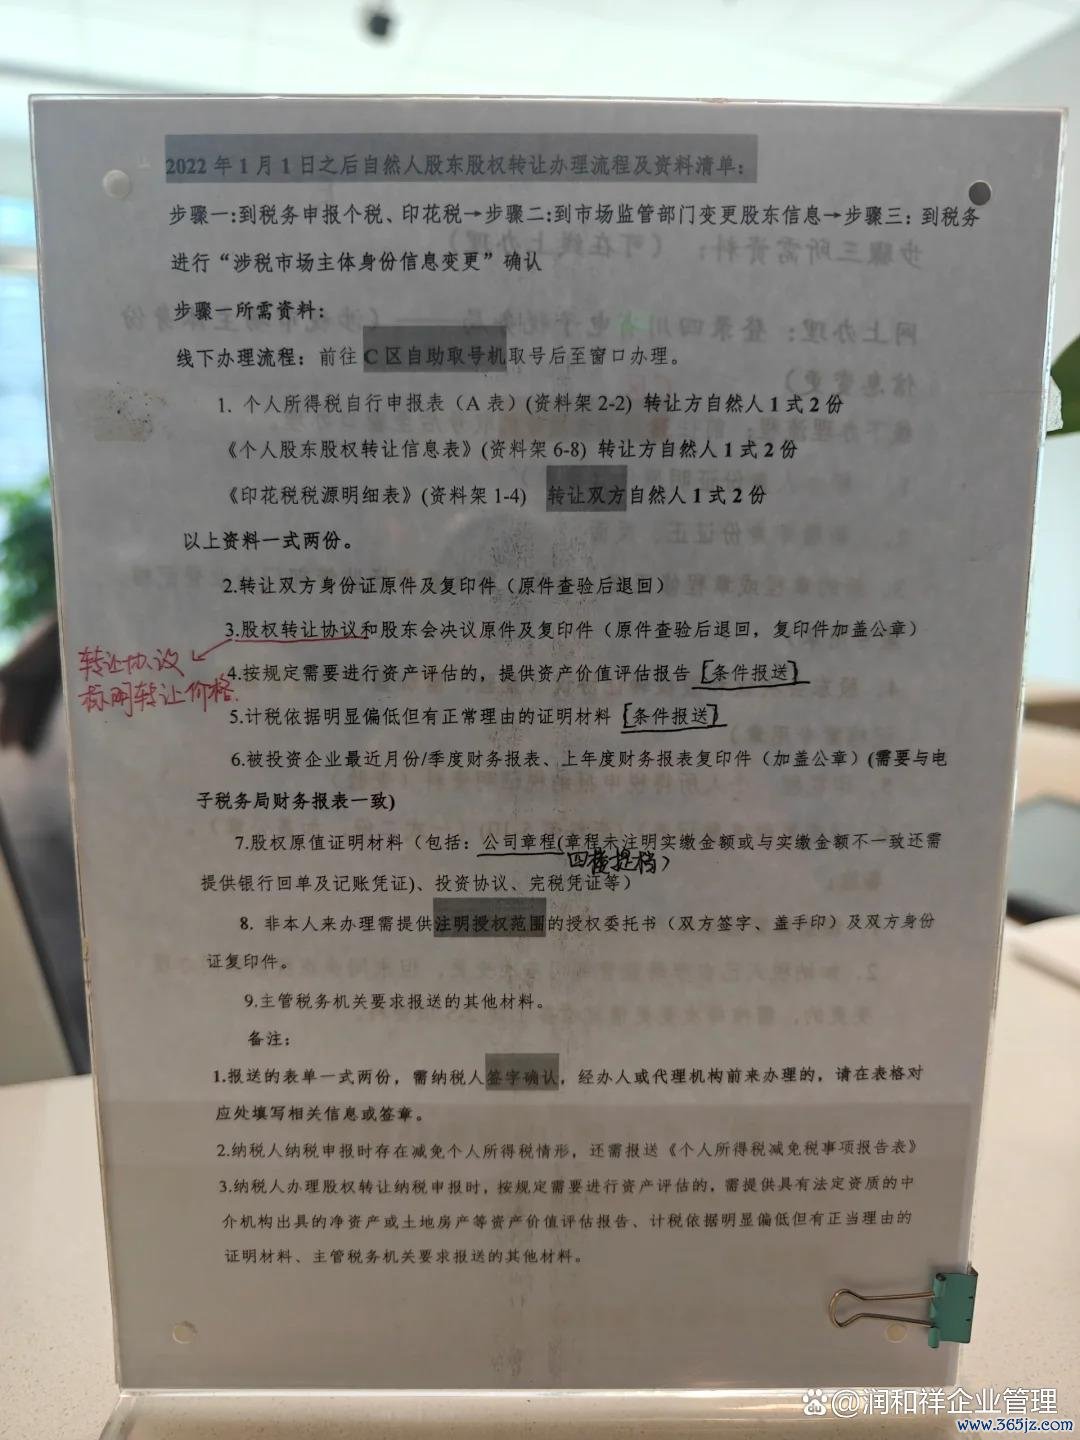 2022年1月1日之后自然人股东股权转让办理流程及资料清单：
步骤一:到税务申报个税、印花税→步骤二:到市场监管部门变更股东信息→步骤三：到税务
进行“涉税市场主体身份信息变更”确认
步骤一所需资料：
线下办理流程：前往C区自助取号机取号后至窗口办理。
1. 个人所得税自行申报表（A表）(资料架2-2) 转让方自然人1式2份
《个人股东股权转让信息表》(资料架6-8) 转让方自然人1式2份
《印花税税源明细表》(资料架1-4) 转让双方自然人1式2份
以上资料一式两份。
2.转让双方身份证原件及复印件（原件查验后退回）
3.股权转让协议和股东会决议原件及复印件（原件查验后退回，复印件加盖公章）
转让协议
标明转让价格.
4.按规定需要进行资产评估的，提供资产价值评估报告[条件报送]
5.计税依据明显偏低但有正常理由的证明材料[条件报送]
6.被投资企业最近月份/季度财务报表、上年度财务报表复印件（加盖公章）(需要与电
子税务局财务报表一致)
7.股权原值证明材料（包括：公司章程(章程未注明实缴金额或与实缴金额不一致还需
四楼提档）
提供银行回单及记账凭证)、投资协议、完税凭证等）
8. 非本人来办理需提供注明授权范围的授权委托书（双方签字、盖手印）及双方身份
证复印件。
9.主管税务机关要求报送的其他材料。
备注：
1.报送的表单一式两份，需纳税人签字确认，经办人或代理机构前来办理的，请在表格对
应处填写相关信息或签章。
2.纳税人纳税申报时存在减免个人所得税情形，还需报送《个人所得税减免税事项报告表》
3.纳税人办理股权转让纳税申报时，按规定需要进行资产评估的，需提供具有法定资质的中
介机构出具的净资产或土地房产等资产价值评估报告、计税依据明显偏低但有正当理由的
证明材料、主管税务机关要求报送的其他材料。
@润和祥企业管理
www.365jz.com